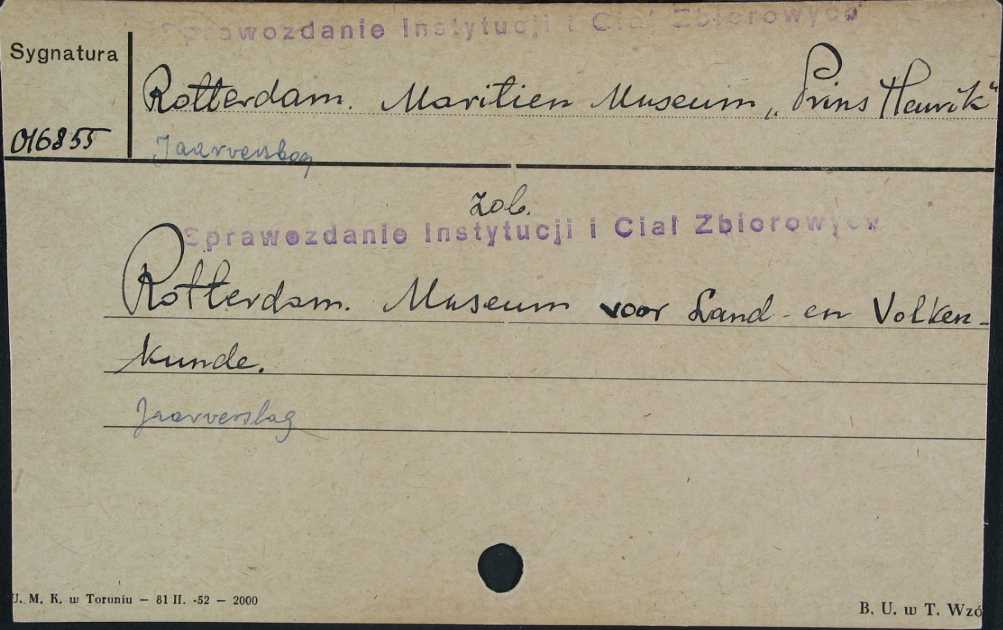 Sprawozdanie Instytucji i Ciał Zbiorowych
Sygnatura
Rotterdam. Maritien Museum „Prins Henrik"
016855
Jaarverslag
zob.
Sprawozdanie Instytucji i Ciał Zbiorowych
Rotterdam. Museum voor Land- en Volken-
kunde.
Jaarverslag
U. M. K. w Toruniu — 81 II. -52 — 2000
B. U. w T. Wzó